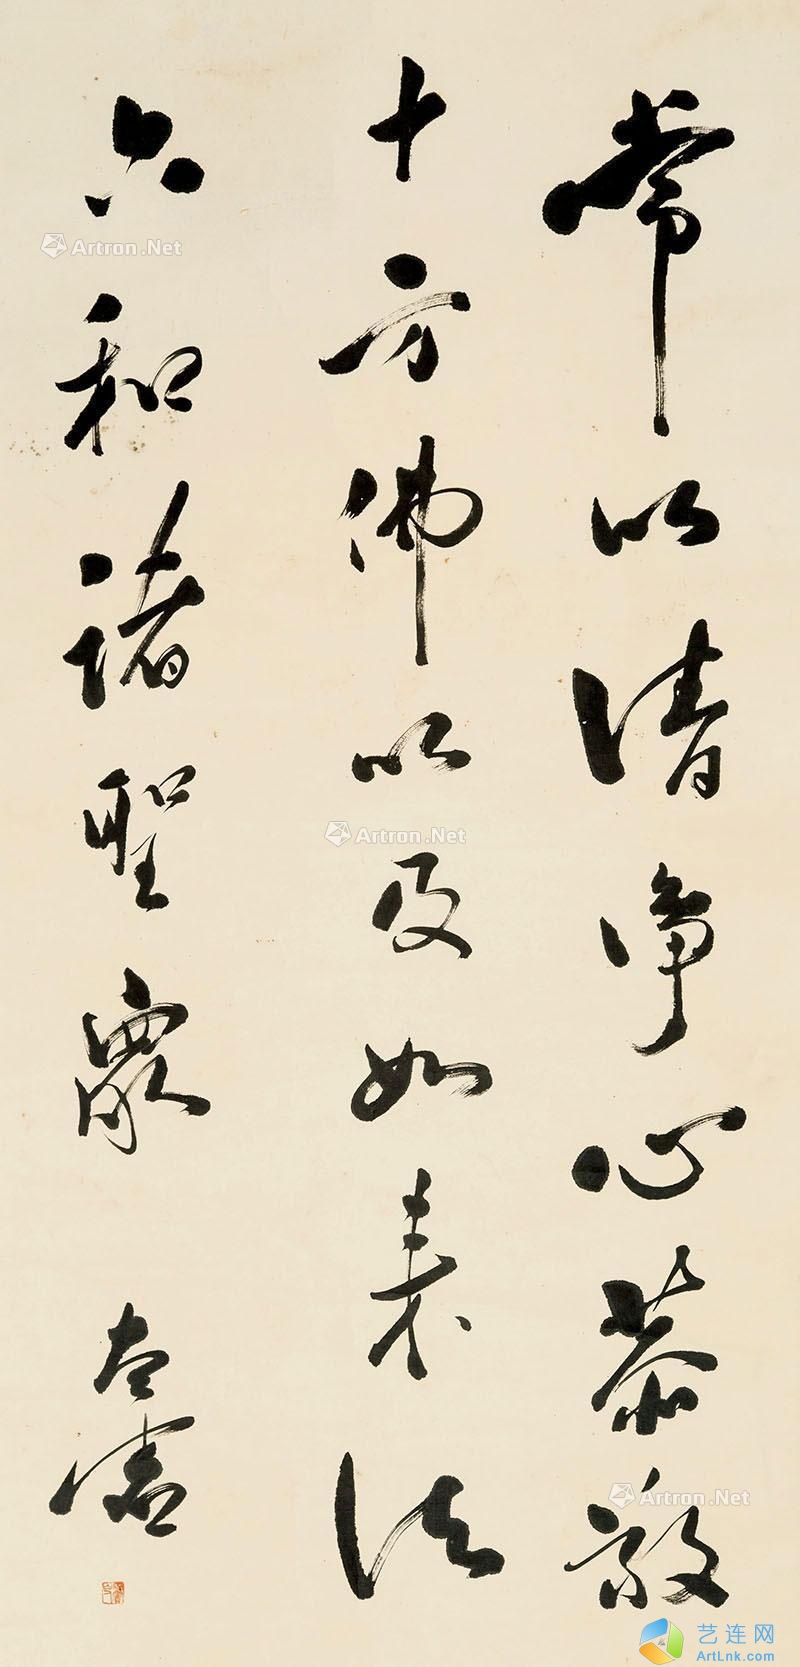 常以清净心恭敬
十方佛以及如来法
六和諸聖眾
太虚
Artron.Net
Artron.Net
Artron.Net
艺连网
ArtLnk.com